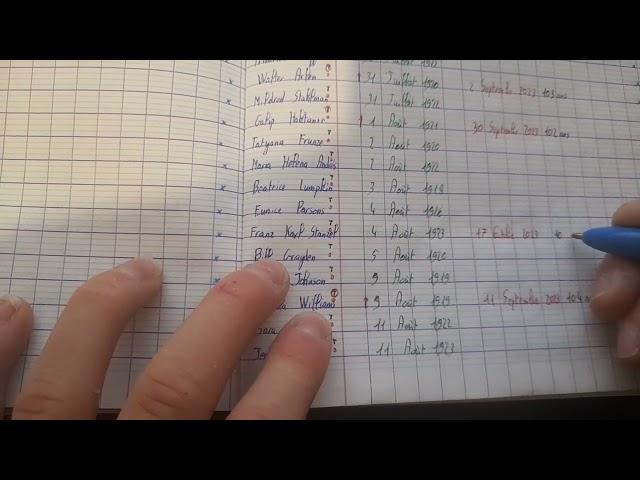 Juillet 1912
Walter Arlen 31 Juillet 1920 2 Septembre 2023 103 ans
Mildred Stahlman 31 Juillet 1922
1 Août 1921 30 Septembre 2023 102 ans
Tatyana Frunze 2 Août 1920
Maria Helena Andrés 2 Août 1922
Beatrice Lumpkin 3 Août 1918
Eunice Parsons 4 Août 1916
Franz Karl Stanzel 4 Août 1923 17 2023
Bill Grayden 5 Août 1920
Johnson 9 Août 1919
Williams 9 Août 1919 11 Septembre 2023 104
11 Août 1922
11 Août 1923